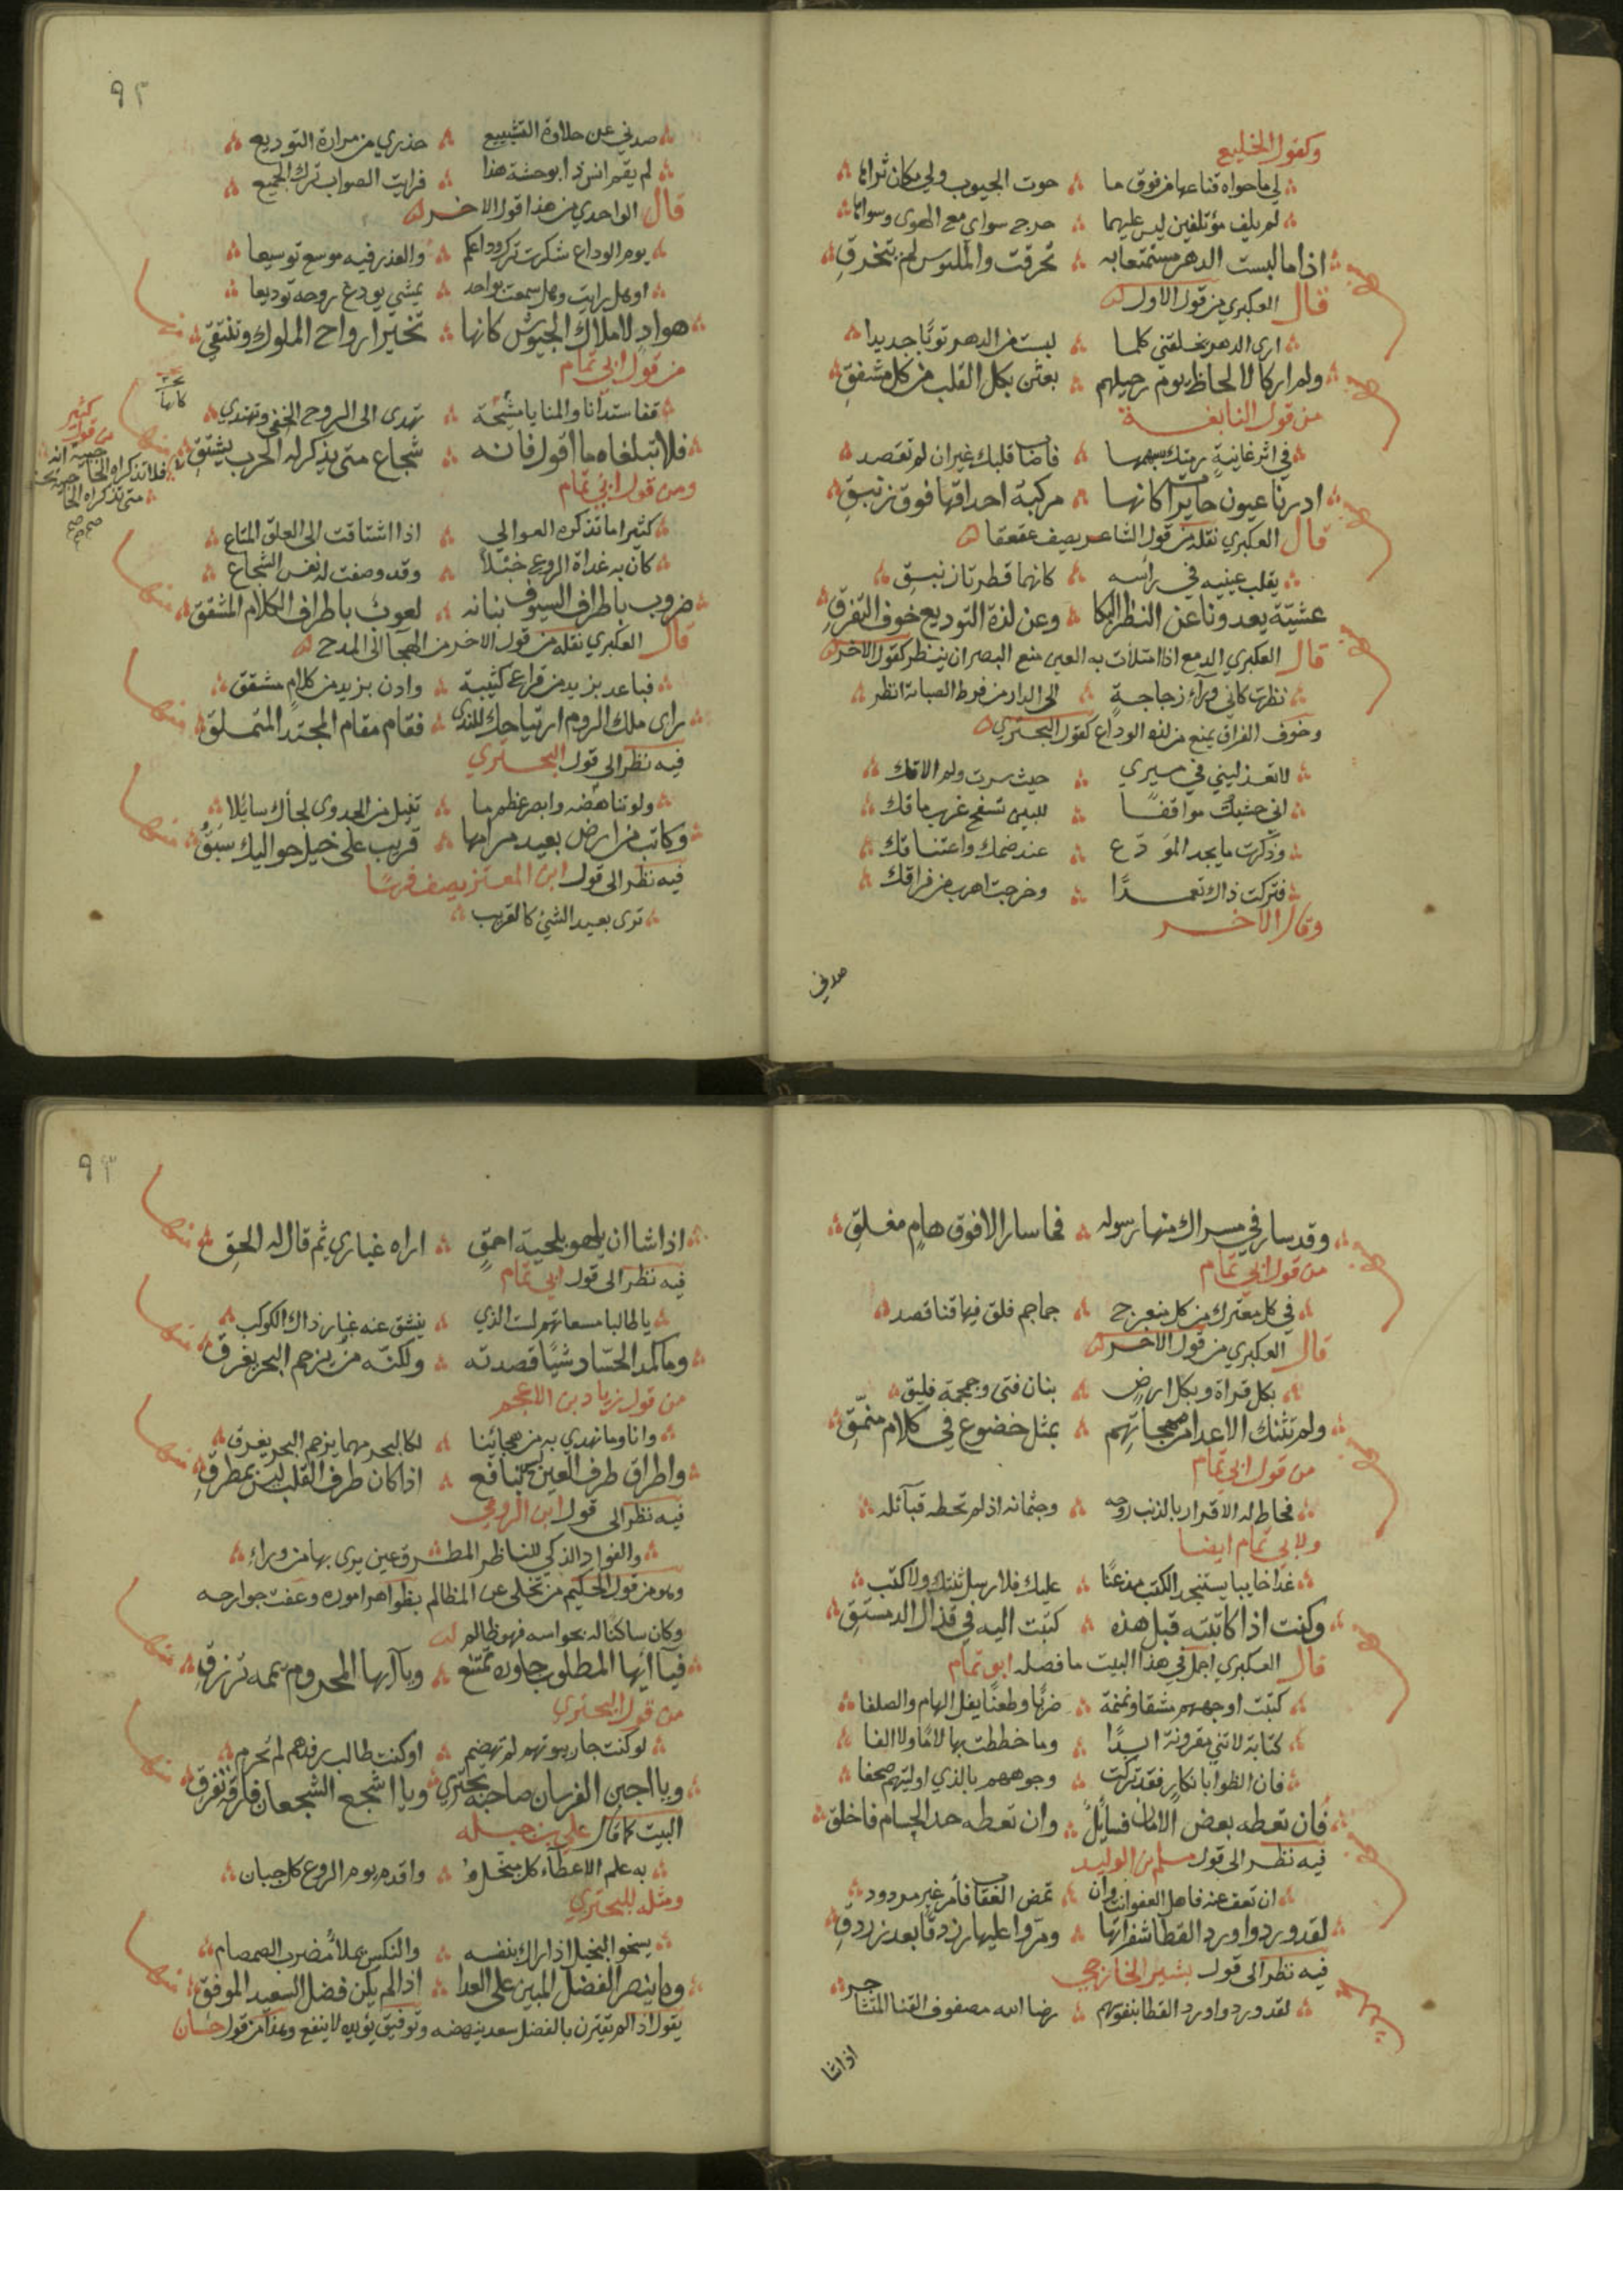 وكقول الخليع
لي ما حواه قناعها من فوق ما حوت الجيوب ولي مكان ثراها
لم يلف مؤتلفين ليس عليهما حرج سواي مع الهوى وسواها
اذا ما لبست الدهر مستمتعا به تخرقت والملبوس لم يتخرق
قال العكبري من قول الاول
ارى الدهر يخلقني كلما لبست من الدهر ثوبا جديدا
ولم ار كالالحاظ يوم رحيلهم بعثن بكل القتل من كل مشفق
من قول النابغة
في اثر غانية رمتك بسهمها فاصاب قلبك غير ان لم تقصد
ادرنا عيونا حايرا كانها مركبة احداقها فوق زئبق
قال العكبري نقله من قول الشاعر يصف عقعقا
يقلب عينيه في راسه كانهما قطرتا زئبق
عشية يعدونا عن النظر البكا وعن لذة التوديع خوف التفرق
قال العكبري الدمع اذا امتلات به العين منع البصر ان ينظر كقول الاخر
نظرت كاني من وراء زجاجة الى الدار من فرط الصبابة انظر
وخوف الفراق يمنع من لذه الوداع كقول البحتري
لا تعذليني في مسيري حيث سرت ولم الاقك
اني خشيت مواقفا للبين تسفح غرب ماقك
وذكرت ما يجد المودع عند ضمك واعتناقك
فتركت ذاك تعمدا وخرجت اهرب من فراقك
وقال الاخر
صدني
٩٢
صدني عن حلاوة التشييع حذري من مرارة التوديع
لم يقم انس ذا بوحشة هذا فرايت الصواب ترك الجميع
قال الواحدي من هذا قول الاخر
يوم الوداع شكرت ترك وداعكم والعذر فيه موسع توسيعا
او هل رايت وهل سمعت بواحد يمشي يودع روحه توديعا
هواد لاملاك الجيوش كانها تخير ارواح الملوك وتنتقي
من قول ابي تمام
قفا سندانا والمنايا مشيحة تهدى الى الروح الخفي وتهتدي
فلا تبلغاه ما اقول فانه شجاع متى يذكر له الحرب يشتق
ومن قول ابي تمام
كثيرا ما تذكره العوالي اذا اشتاقت الى العلق المتاع
كان به غداة الروع خبلا وقد وصفت له نفس الشجاع
ضروب باطراف السيوف بنانه لعوب باطراف الكلام المشقق
قال العكبري نقله من قول الاخر من الهجا الى المدح
فباعد يزيد من قراع كتيبة وادن يزيد من كلام مشقق
راى ملك الروم ارتياحك للندى فقام مقام المجتدي المتملق
فيه نظر الى قول البحتري
ولو تناهضه وابصر عظم ما تنيل من الجدوى لجاءك سائلا
وكاتب من ارض بعيد مرامها قريب على خيل حواليك سبق
فيه نظر الى قول ابن المعتز يصف فرسا
ترى بعيد الشيء كالقريب
كثير
من قول
وقد سار في مسراك منها رسوله فما سار الا فوق هام مفلق
من قول ابي تمام
في كل معترك من كل منعرج جماجم فلق فيها قنا قصد
قال العكبري من قول الاخر
بكل قراة وبكل ارض بنان فتى وجمجمة فليق
ولم تثنك الاعدا عن مهجاتهم بمثل خضوع في كلام منمق
من قول ابي تمام
فحاط له الاقرار بالذنب روحه وجثمانه اذ لم تحطه قبائله
ولابي تمام ايضا
غدا خايبا يستنجد الكتب مذعنا عليك فلا رسل ثنتك ولا كتب
وكنت اذا كاتبته قبل هذه كتبت اليه في قذال الدمستق
قال العكبري اجمل في هذا البيت ما فصله ابو تمام
كتبت اوجههم مشقا ونمنمة ضربا وطعنا يفل الهام والصلفا
كتابة لا تني مقروءة ابدا وما خططت بها لاما ولا الفا
فان الظوا بانكار فقد تركت وجوههم بالذي اوليتهم صحفا
فان تعطه بعض الامان فسائل وان تعطه حد الحسام فاخلق
فيه نظر الى قول مسلم بن الوليد
ان تعف عنه فاهل العفو انت وان تمض العقاب فامر غير مردود
لقد وردوا ورد القطا شفراتها ومروا عليها رزدقا بعد رزدق
فيه نظر الى قول بشير الخارجي
لقد وردوا ورد القطا بنفوسهم رضا الله مصفوف القنا المتشاجر
اذا شا
٩٣
اذا شا ان يلهو بلحية احمق اراه غباري ثم قال له الحق
فيه نظر الى قول ابي تمام
يا طالبا مسعاتهم لست الذي ينشق عنه غبار ذاك الكوكب
وما كمد الحساد شيئا قصدته ولكنه من يزحم البحر يغرق
من قول زياد بن الاعجم
وانا وما نهدي به من هجائنا لكالبحر مهما يزحم البحر يغرق
واطراق طرف العين ليس بنافع اذا كان طرف القلب ليس بمطرق
فيه نظر الى قول ابن الرومي
والفواد الذكي للناظر المطرق عين يرى بها من وراء
وهو من قول الحكيم من تخلى عن المظالم بظواهر اموره وعفت جوارحه
وكان ساكنا له بحواسه فهو ظالم
فيا ايها المطلوب جاوره تمتنع ويا ايها المحروم يممه ترزق
من قول البحتري
لو كنت جار بيوتهم لم تهضم او كنت طالب رفدهم لم تحرم
ويا اجبن الفرسان صاحبه تجتري ويا اشجع الشجعان فارقه تفرق
البيت كما قال علي بن جبلة
به علم الاعطاء كل مبخل واقدم يوم الروع كل جبان
ومثله للبحتري
يسخو البخيل اذا راك بنفسه والنكس يملا مضرب الصمصام
وما ينصر الفضل المبين على العدا اذا لم يكن فضل السعيد الموفق
يقول اذا لم تقترن بالفضل سعد ينهضه وتوفيق يؤيده لا ينفع وهذا من قول حسان